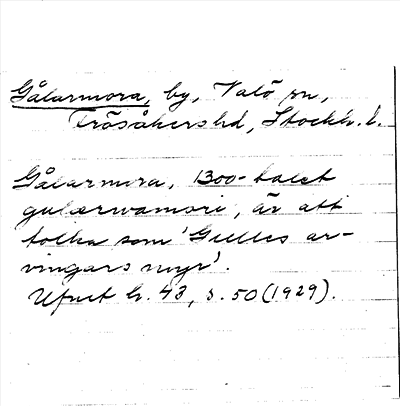 Gålarmora, by, Valö sn,
Frösåkers hd, Stockh. l.
Gålarmora, 1300-talet
gulærwamore, är att
tolka som 'Gulles ar-
vingars myr'.
Ufnet h. 43, s. 50 (1929).